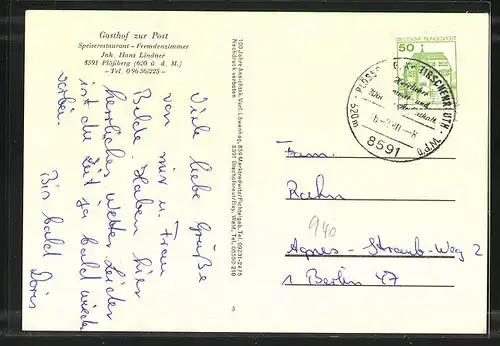 Gasthof zur Post
Speiserestaurant – Fremdenzimmer
Inh. Hans Lindner
8591 Plößberg (620 ü. d. M.)
– Tel. 0 96 36/225 –
Viele liebe Grüße
von mir u. Frau
Bilde. Haben hier
herrliches Wetter. Leider
ist die Zeit ja bald wieder
vorbei.
Bis bald
Doris
100 Jahre Ansichtsk. Verl. Löwenhag, 859 Marktredwitz/Fichtelgeb. Tel. 09231-2475
Nachdruck verboten 8391 Bischofsreut/Bay. Wald, Tel. 08550-210
5
50
DEUTSCHE BUNDESPOST
TIRSCHENREUTH
520m
8591
Fam.
Rahn
940
Agnes - Straub-Weg 2
1 Berlin 47